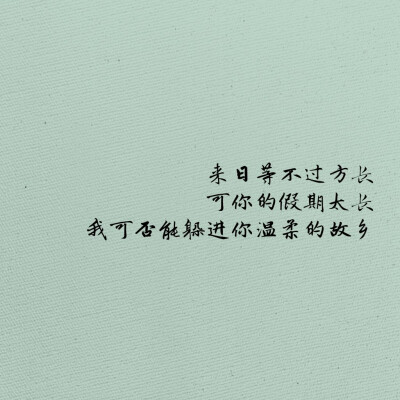 来日等不过方长
可你的假期太长
我可否能躲进你温柔的故乡